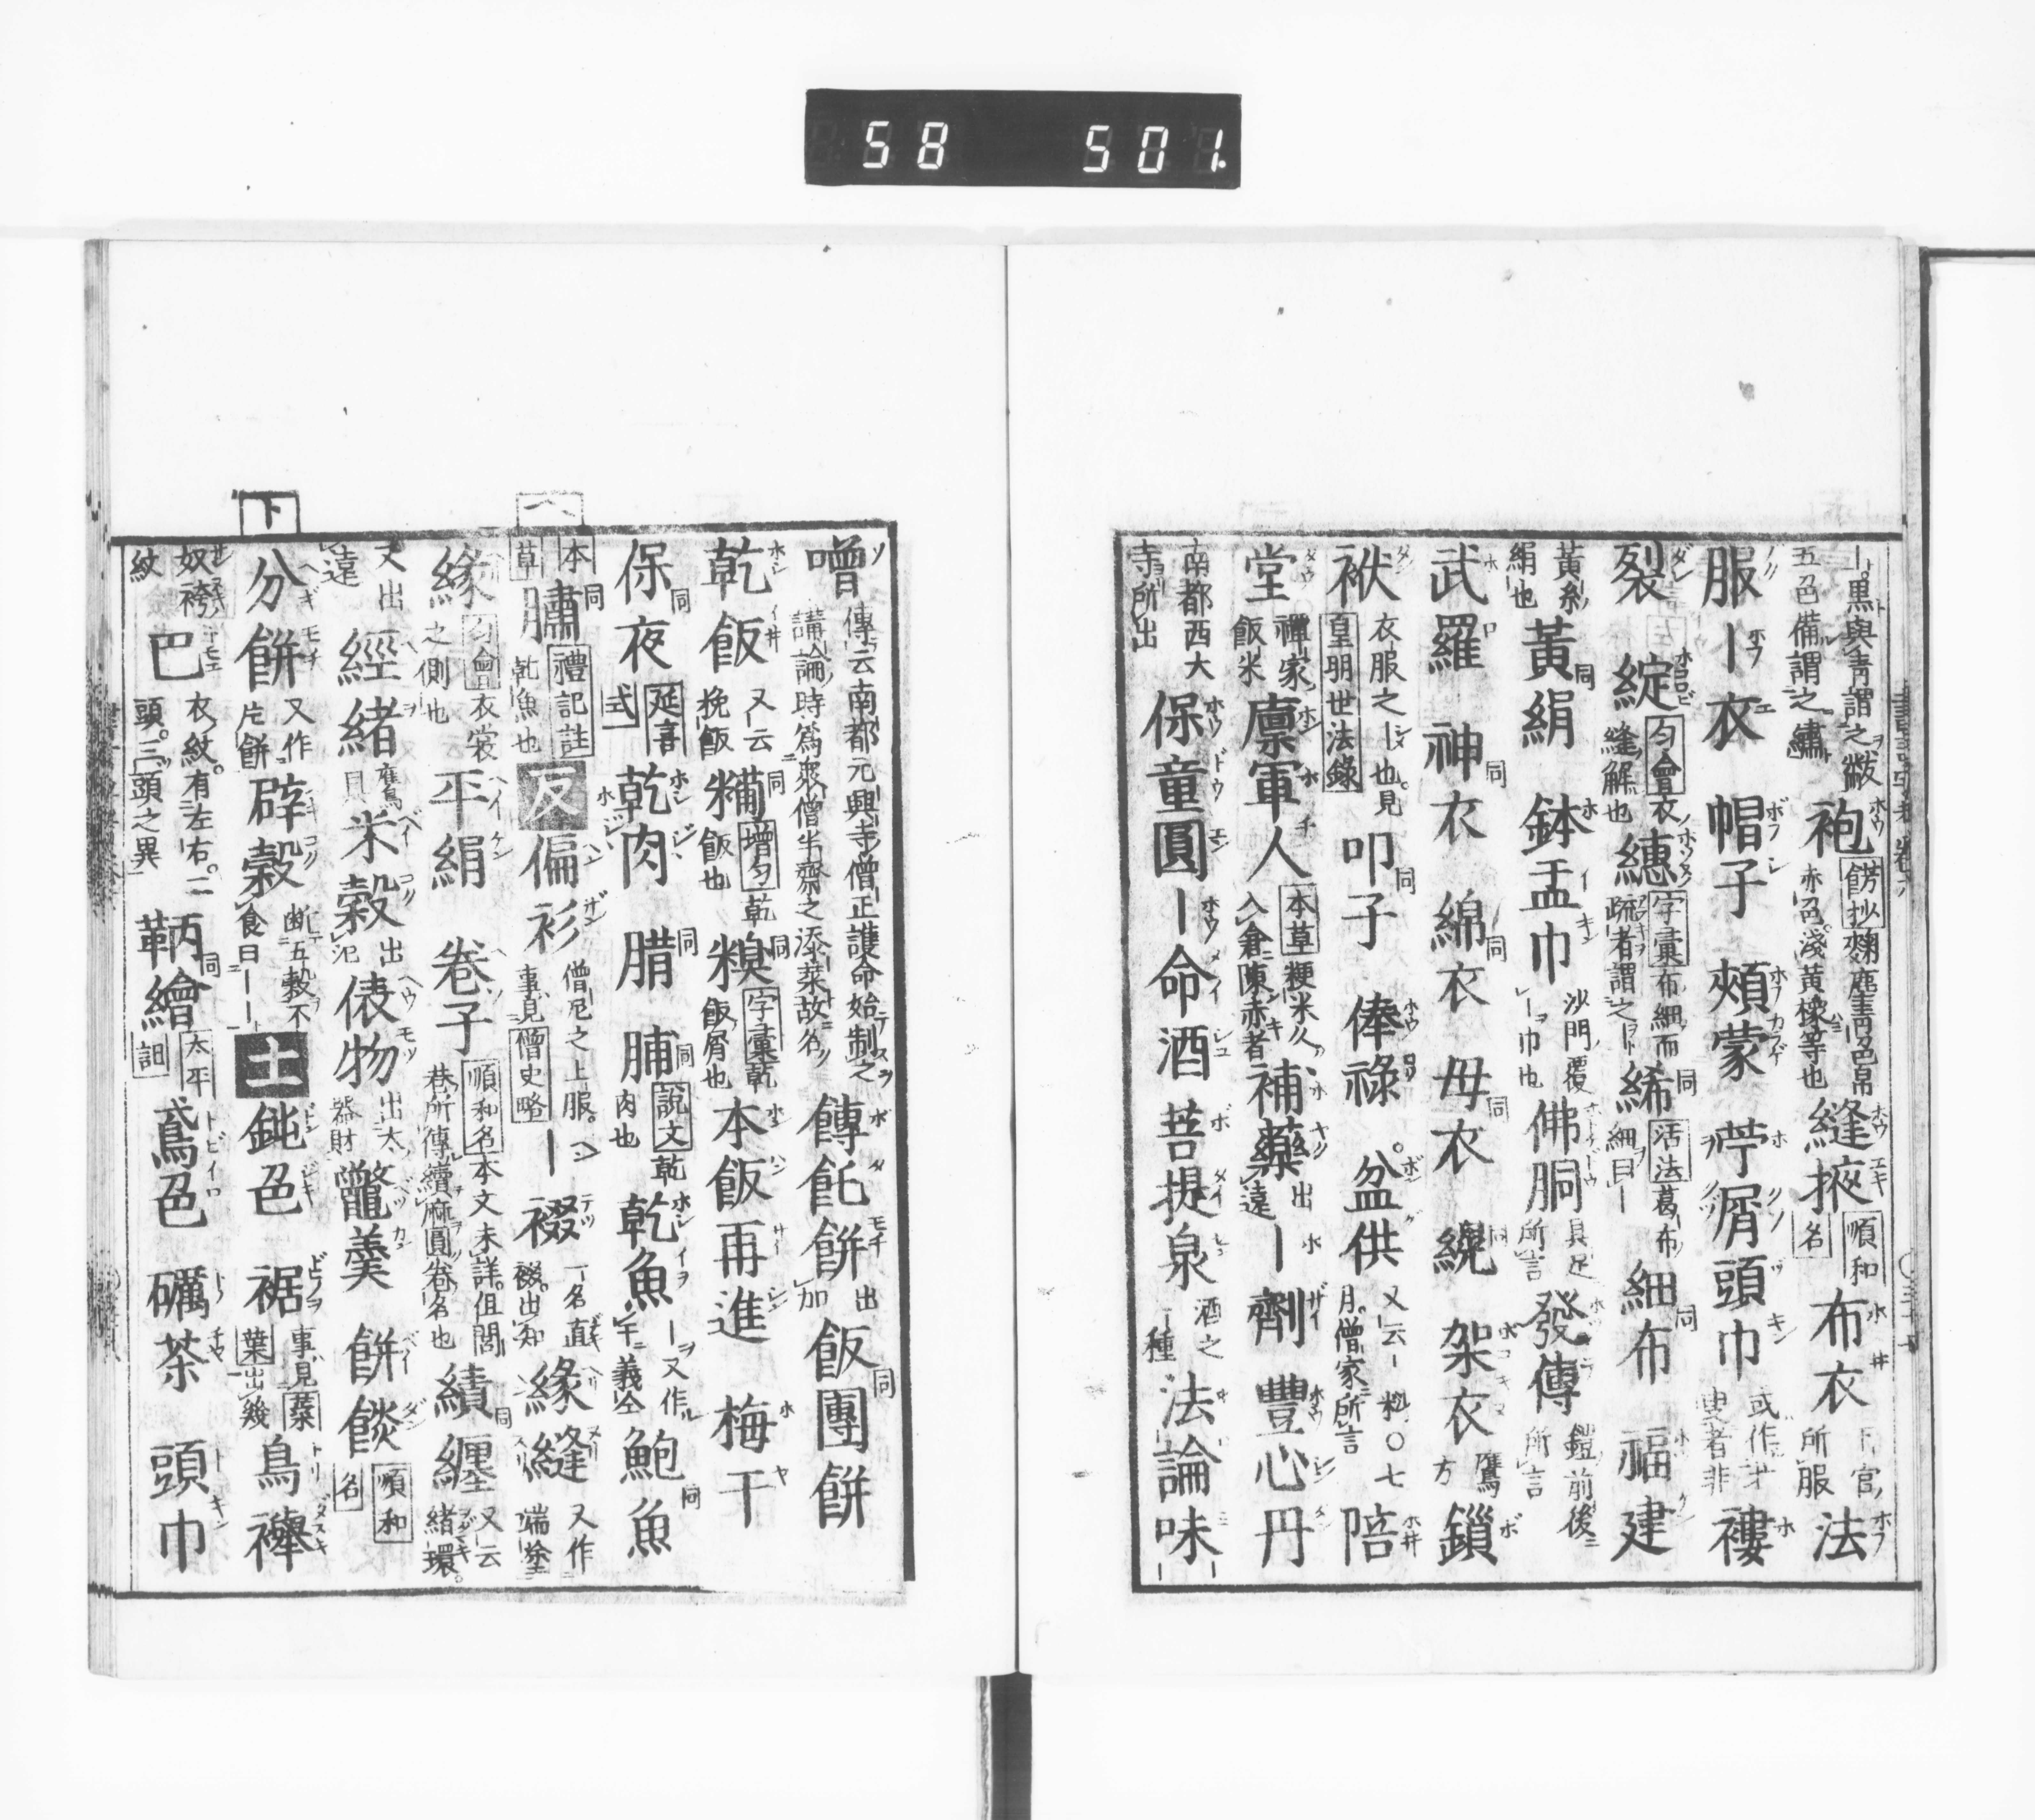 58 501.
黒與青謂之黻 五色備謂之繡 袍 餝抄 麹塵青色帛 赤色淺黄橡等也 縫掖 順和名 布衣 下官所服 法
服 ー衣 帽子 頰蒙 苧屑頭巾 或作 者非 褸
裂 綻 匀會 衣縫解也 繐 字彙 布細而疏者謂之ー 絺 活法 葛布細曰ー 細布 福建
黄糸絹也 黄絹 鉢盂巾 沙門覆ー巾也 佛胴 具足所言 發傳 鎧前後所言
武羅 神衣 綿衣 母衣 縨 架衣 鷹方 鎖
袱 衣服之ー也見 皇明世法錄 叩子 俸祿 盆供 又云ー ○七月僧家所言 陪
堂 禪家飯米 廩軍人 本草 粳米久入倉陳赤者 補藥 出遠 ー劑 豐心丹
南都西大寺所出 保童圓 ー命酒 菩提泉 酒之ー種 法論味ー
噌 傳云南都元興寺僧正護命始制之 講論時爲衆僧半齋之添菜故名 餺飥餅 出加 飯團餅
乾飯 又云挽飯 糒 增匀 乾飯也 糗 字彙 乾飯屑也 本飯再進 梅干
保夜 延喜式 乾肉 腊 脯 説文 乾肉也 乾魚 ー又作干義仝 鮑魚
本草 鱐 禮記註 乾魚也 反 偏衫 僧尼之上服 事見 僧史略 ー裰 一名直裰出知 緣縫 又作端塗
緣 匀會 衣裳之側也 平絹 卷子 順和名 本文未詳但閭巷所傳續麻圓卷名也 績纒 又云緒環
又出遠 經緒 鷹具 米穀 出氾 俵物 出太器財 鼈羹 餅餤 順和名
下 分餅 又作片餅 辟穀 斷五穀不食曰ーー 土 鈍色 裾 事見 蘂葉 出幾 鳥襷
奴袴紋 巴 衣紋有左右二頭三頭之異 鞆繪 太平詔 鳶色 礪茶 頭巾